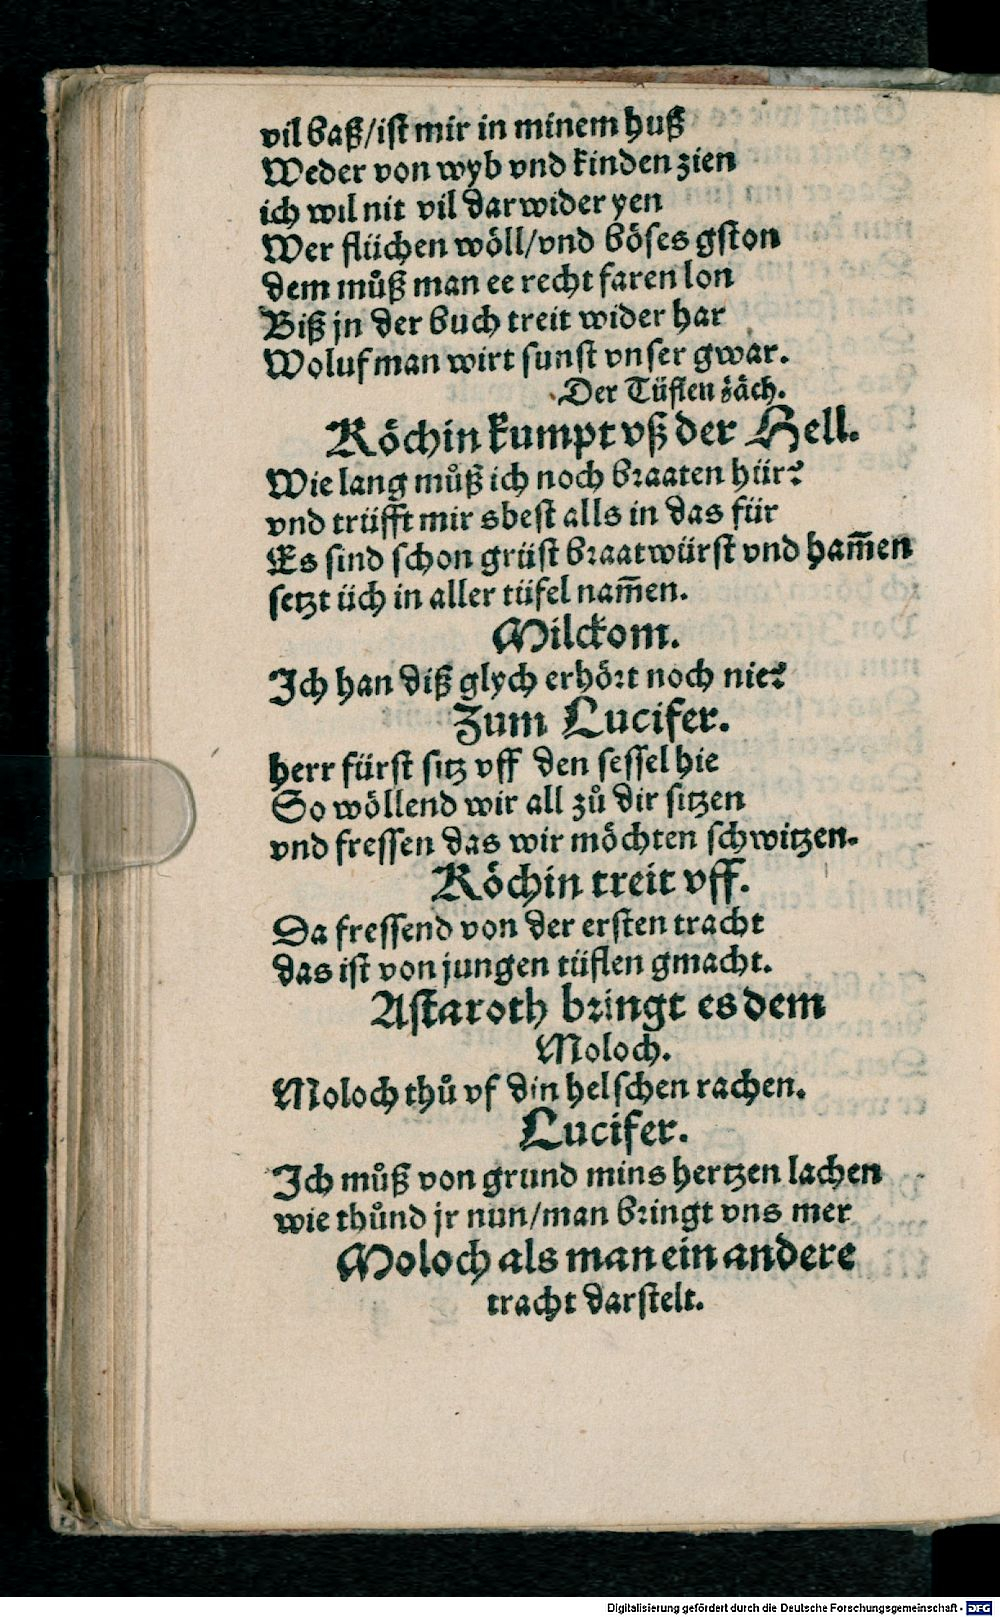 vil baß/ist mir in minem huß
Weder von wyb vnd kinden zien
ich wil nit vil darwider yen
Wer flüchen wöll/vnd böses gston
dem můß man ee recht faren lon
Biß jn der buch treit wider har
Woluf man wirt sunst vnser gwar.
Der Tüflen zäch.
Köchin kumpt vß der Hell.
Wie lang můß ich noch braaten hür?
vnd trüfft mir sbest alls in das für
Es sind schon grüst braatwürst vnd ham̅en
setzt üch in aller tüfel nam̅en.
Milckom.
Ich han diß glych erhört noch nie?
Zum Lucifer.
herr fürst sitz vff den sessel hie
So wöllend wir all zů dir sitzen
vnd fressen das wir möchten schwitzen.
Köchin treit vff.
Da fressend von der ersten tracht
das ist von jungen tüflen gmacht.
Astaroth bringt es dem
Moloch.
Moloch thů vf din helschen rachen.
Lucifer.
Ich můß von grund mins hertzen lachen
wie thůnd jr nun/man bringt vns mer
Moloch als man ein andere
tracht darstelt.
Digitalisierung gefördert durch die Deutsche Forschungsgemeinschaft - DFG